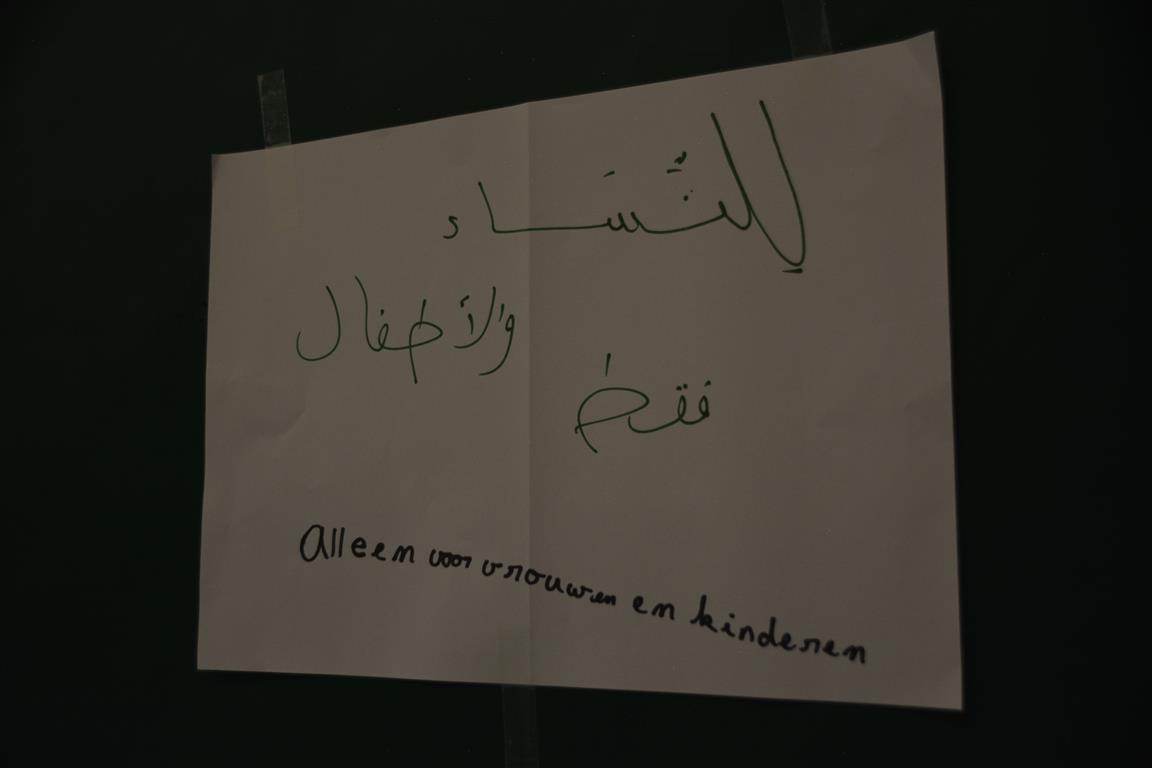 لِلنِّسَاء
وَالأَطفال
فقط
Alleen voor vrouwen en kinderen